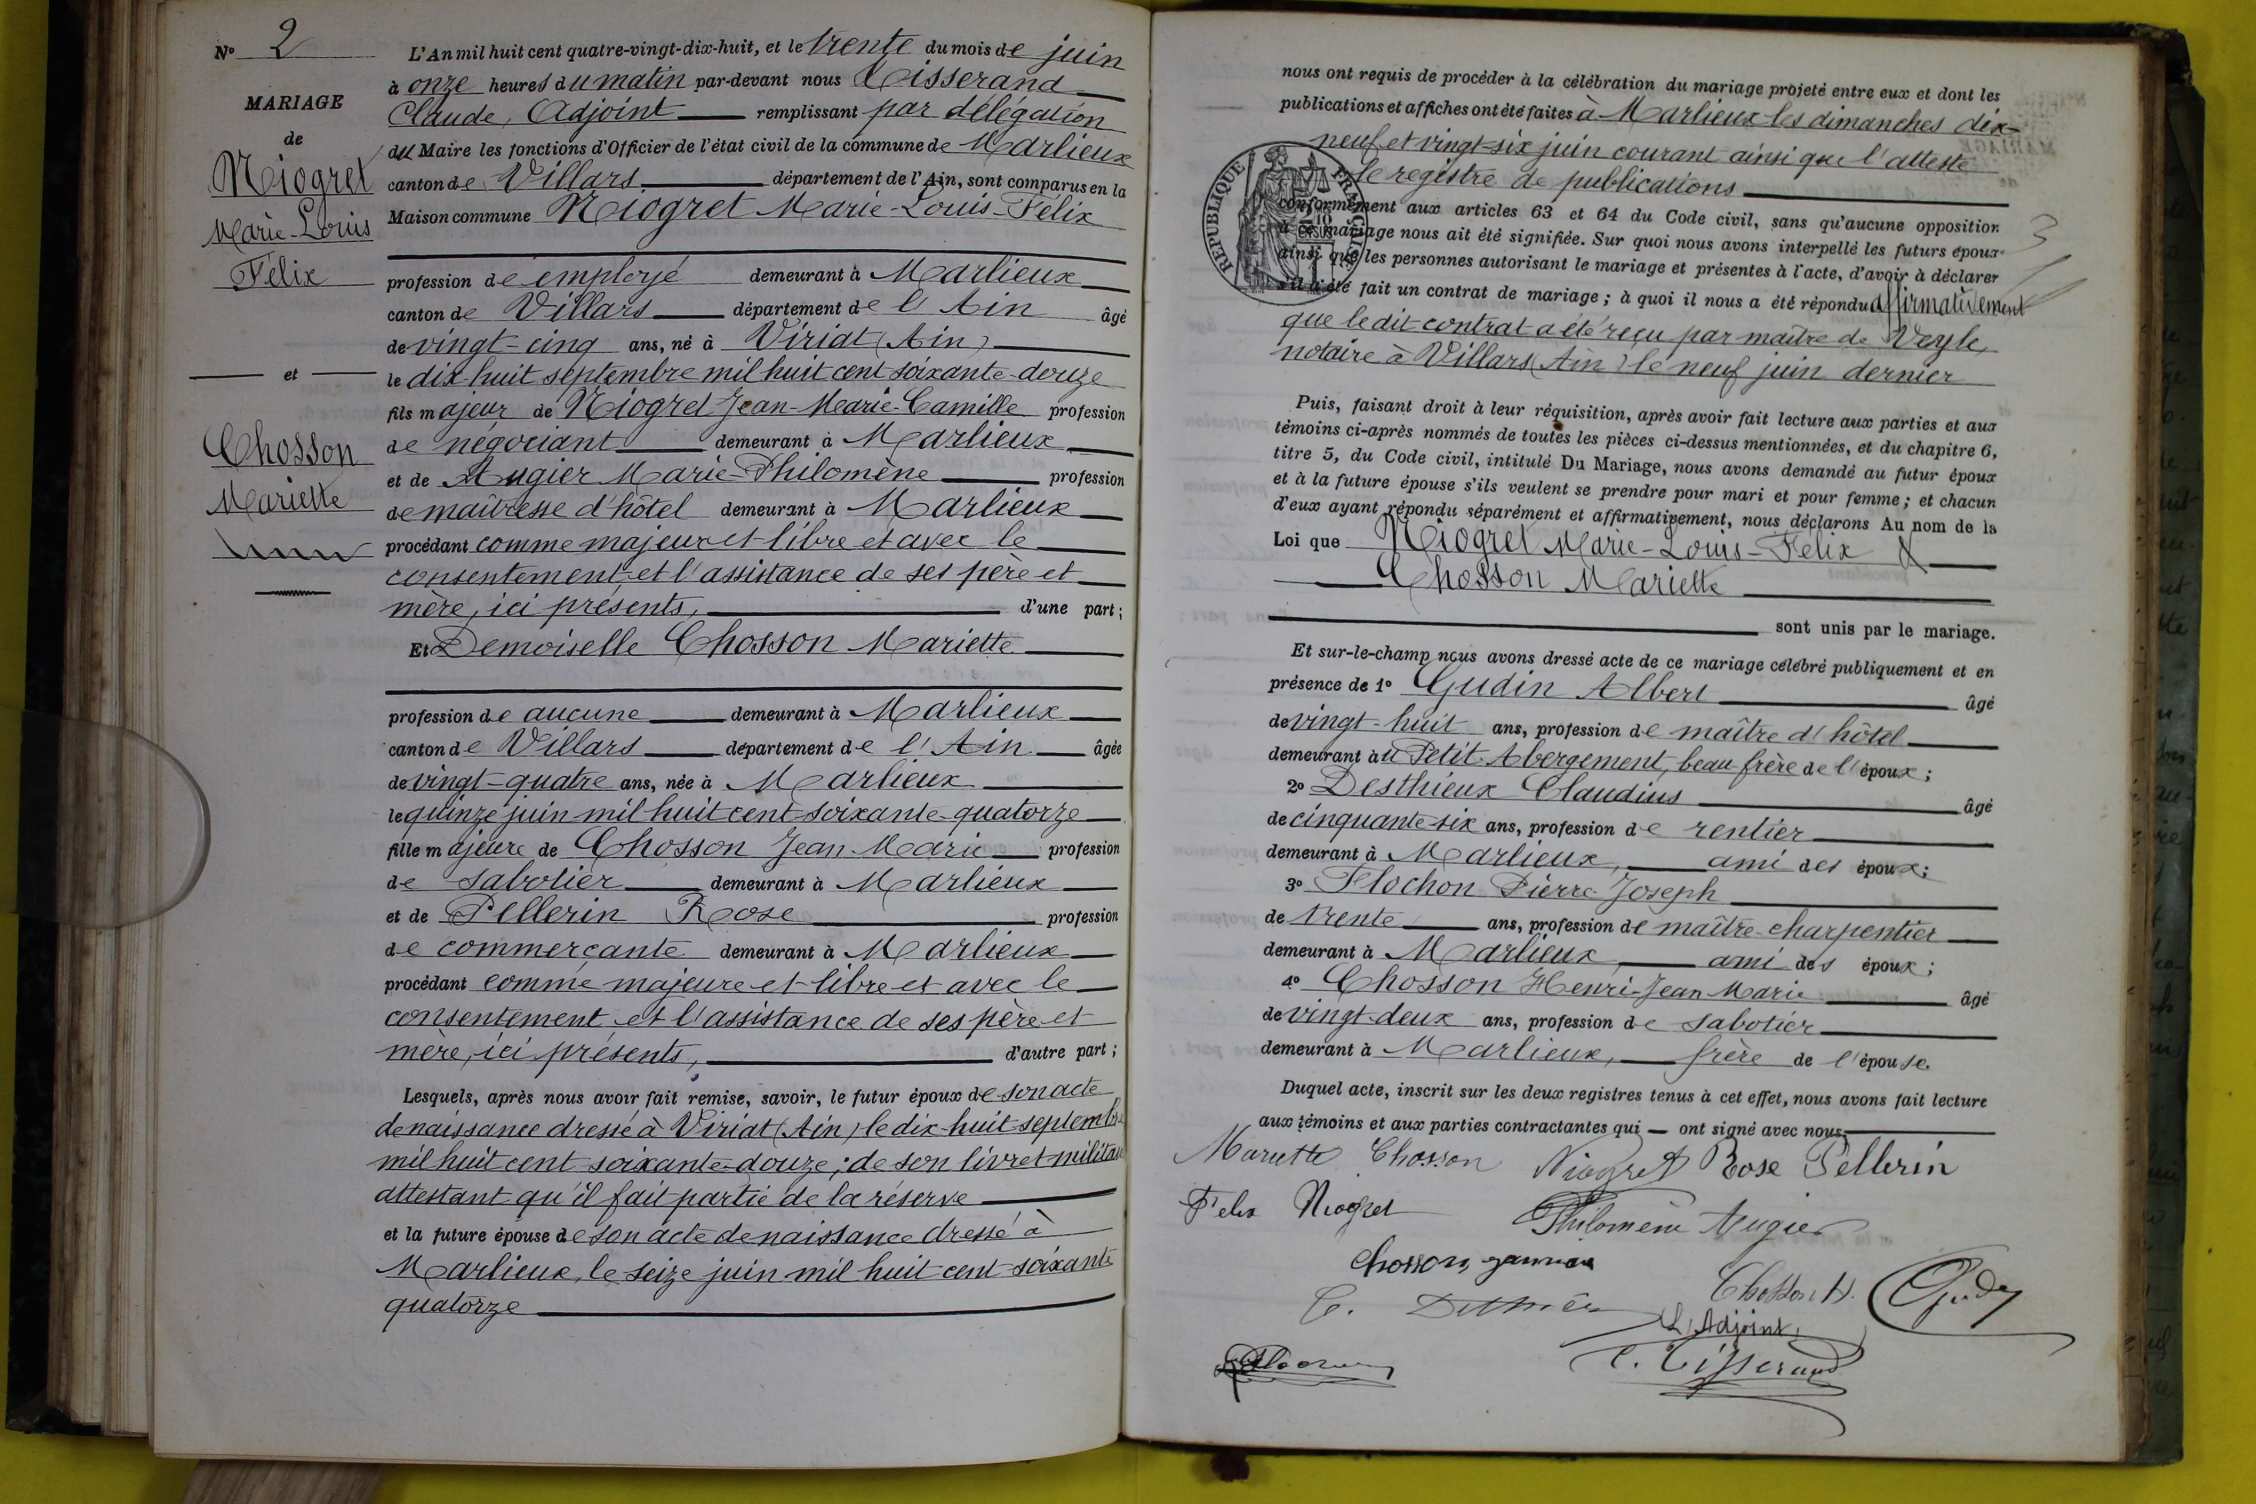 N° 2
MARIAGE
de
Niogret
Marie-Louis
Félix
et
Chosson
Mariette
L'An mil huit cent quatre-vingt-dix-huit, et le trente du mois de juin
à onze heures du matin par-devant nous Tisserand
Claude, Adjoint remplissant par délégation
du Maire les fonctions d'Officier de l'état civil de la commune de Marlieux
canton de Villars département de l'Ain, sont comparus en la
Maison commune Niogret Marie-Louis-Félix
profession de employé demeurant à Marlieux
canton de Villars département de l'Ain âgé
de vingt-cinq ans, né à Viriat (Ain)
le dix-huit septembre mil huit cent soixante-douze
fils majeur de Niogret Jean-Marie-Camille profession
de négociant demeurant à Marlieux
et de Augier Marie-Philomène profession
de maîtresse d'hôtel demeurant à Marlieux
procédant comme majeur et libre et avec le
consentement et l'assistance de ses père et
mère, ici présents, d'une part;
Et Demoiselle Chosson Mariette
profession de aucune demeurant à Marlieux
canton de Villars département de l'Ain âgée
de vingt-quatre ans, née à Marlieux
le quinze juin mil huit cent soixante-quatorze
fille majeure de Chosson Jean-Marie profession
de sabotier demeurant à Marlieux
et de Pellerin Rose profession
de commerçante demeurant à Marlieux
procédant comme majeure et libre et avec le
consentement et l'assistance de ses père et
mère, ici présents, d'autre part;
Lesquels, après nous avoir fait remise, savoir, le futur époux de son acte
de naissance dressé à Viriat (Ain) le dix-huit septembre
mil huit cent soixante-douze; de son livret militaire
attestant qu'il fait partie de la réserve
et la future épouse de son acte de naissance dressé à
Marlieux, le seize juin mil huit cent soixante
quatorze
nous ont requis de procéder à la célébration du mariage projeté entre eux et dont les
publications et affiches ont été faites à Marlieux les dimanches dix-
neuf et vingt-six juin courant ainsi que l'atteste
le registre de publications
REPUBLIQUE FRANÇAISE
conformément aux articles 63 et 64 du Code civil, sans qu'aucune opposition
à ce mariage nous ait été signifiée. Sur quoi nous avons interpellé les futurs époux
ainsi que les personnes autorisant le mariage et présentes à l'acte, d'avoir à déclarer
s'il a été fait un contrat de mariage; à quoi il nous a été répondu affirmativement
que ledit contrat a été reçu par maître de Veyle,
notaire à Villars (Ain) le neuf juin dernier
Puis, faisant droit à leur réquisition, après avoir fait lecture aux parties et aux
témoins ci-après nommés de toutes les pièces ci-dessus mentionnées, et du chapitre 6,
titre 5, du Code civil, intitulé Du Mariage, nous avons demandé au futur époux
et à la future épouse s'ils veulent se prendre pour mari et pour femme; et chacun
d'eux ayant répondu séparément et affirmativement, nous déclarons Au nom de la
Loi que Niogret Marie-Louis-Felix &
Chosson Mariette
sont unis par le mariage.
Et sur-le-champ nous avons dressé acte de ce mariage célébré publiquement et en
présence de 1° Gudin Albert âgé
de vingt-huit ans, profession de maître d'hôtel
demeurant au Petit-Abergement, beau frère de l'époux;
2° Desthieux Claudius âgé
de cinquante-six ans, profession de rentier
demeurant à Marlieux, ami des époux;
3° Flochon Pierre-Joseph
de trente ans, profession de maître-charpentier
demeurant à Marlieux, ami des époux;
4° Chosson Henri-Jean-Marie âgé
de vingt-deux ans, profession de sabotier
demeurant à Marlieux, frère de l'épouse.
Duquel acte, inscrit sur les deux registres tenus à cet effet, nous avons fait lecture
aux témoins et aux parties contractantes qui ont signé avec nous
Mariette Chosson Niogret Rose Pellerin
Felix Niogret Philomène Augier
Chosson
Chosson H. Gudin
L'Adjoint,
C. Tisserand